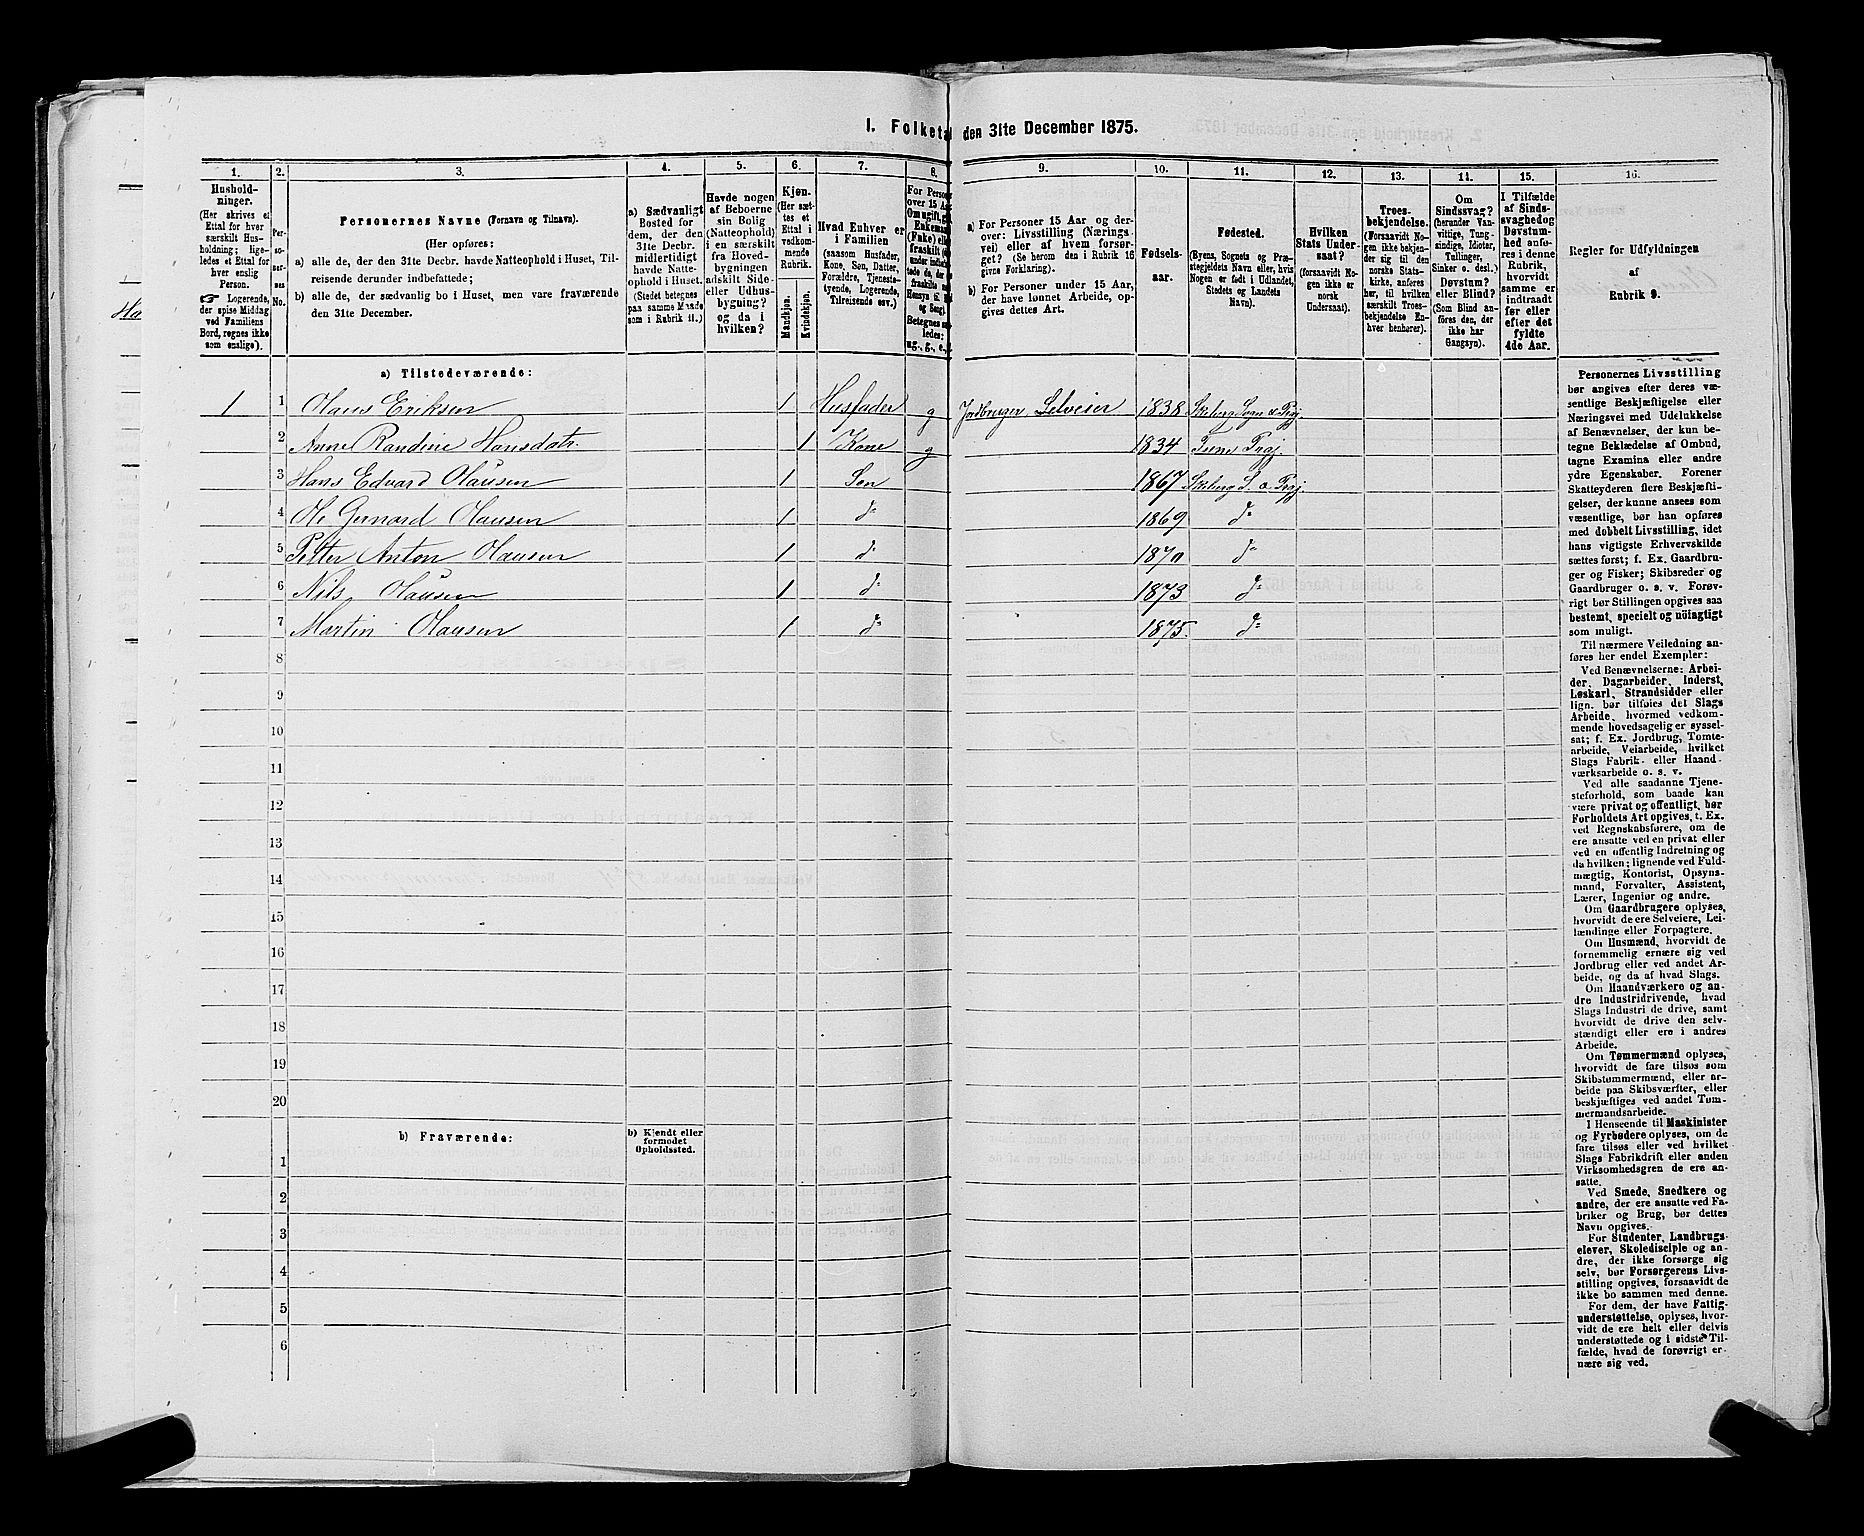 I. Folketa den 31te December 1875.
1. 2. 3. 4. 5. 6. 7. 8. 9. 10. 11. 12. 13. 14. 15. 16.
Hushold-
ninger.
(Her skrives et
Ettal for hver
særskilt Hus-
holdning; lige-
ledes et Ettal for
hver enslig
Person.
Logerende,
der spise Middag
ved Familiens
Bord, regnes ikke
som enslige).
Per-
so-
ner-
nes
No.
Personernes Navne (Fornavn og Tilnavn).
(Her opføres:
a) alle de, der den 31te Decbr. havde Natteophold i Huset, Til-
reisende derunder indbefattede;
b) alle de, der sædvanlig bo i Huset, men vare fraværende
den 31te December.
a) Sædvanligt
Bosted for
dem, der den
31te Decbr.
midlertidigt
havde Natte-
ophold i Huset.
(Stedet betegnes
paa samme Maade
som i Rubrik 11.)
Havde nogen
af Beboerne
sin Bolig
(Natteophold)
i en særskilt
fra Hoved-
bygningen
adskilt Side-
eller Udhus-
bygning?
og da i
hvilken?
Kjøn.
(Her sæt-
tes et
Ettal i
vedkom-
mende
Rubrik.
Mandkjøn.
Kvindekjøn.
Hvad Enhver er
i Familien
(saasom Husfader,
Kone, Søn, Datter,
Forældre, Tjeneste-
tyende, Logerende,
Tilreisende osv.)
For Person
over 15 Aa
Om ugift, gi
Enkeman
(Enke) elle
fraskilt
ug., g., e.,
a) For Personer 15 Aar og der-
over: Livsstilling (Nærings
vei) eller af hvem forsør-
get? (Se herom den i Rubrik 16
givne Forklaring).
b) For Personer under 15 Aar,
der have lønnet Arbeide, op-
gives dettes Art.
Fødsels-
aar.
Fødested.
(Byens, Sognets og Præ-
stegjeldets Navn eller, hvis
Nogen er født i Udlandet,
Stedets og Landets
Navn).
Hvilken
Stats Under-
saat?
(forsaavidt No-
gen ikke er
norsk
Undersaat).
Troes-
bekjendelse.
(Forsaavidt No-
gen ikke bekjen-
der sig til den
norske Stats-
kirke, anføres
her, til hvilken
særskilt Troes-
bekjendelse En-
hver henhører).
Om
Sindssvag?
(herunder Van-
vittige, Tung-
sindige, Idioter,
Tullinger,
Sinker o. desl.)
Døvstum?
eller Blind?
(Som Blind an-
føres den, der
ikke har
Gangsyn).
I Tilfælde
af Sinds-
svaghed og
Døvstum-
hed anfø-
res i denne
Rubrik,
hvorvidt
samme er
indtraadt
før eller
efter det
fyldte
4de Aar.
Regler for Udfyldningen
af
Rubrik 9.
a) Tilstedeværende:
1 1 Olaus Eriksen 1 Husfader g Jordbruger, Selveier 1838 Skeberg Sogn & Prgj.
2 Anne Randine Hansdatr. 1 Kone g 1834 Tune Prgj.
3 Hans Edvard Olausen 1 Søn 1867 Skeberg S. & Prgj.
4 Ole Olausen 1 do 1869 do
5 Petter Anton Olausen 1 do 1870 do
6 Nils Olausen 1 do 1873 do
7 Martin Olausen 1 do 1875. do
8
9
10
11
12
13
14
15
16
17
18
19
20
b) Fraværende:
b) Kjendt eller
formodet
Opholdssted.
1
2
3
4
5
6
Personernes Livsstilling
bør angives efter deres væ-
sentlige Beskjæftigelse eller
Næringsvei med Udelukkelse
af Benævnelser, der kun be-
tegne Beklædelse af Ombud,
tagne Examina eller andre
ydre Egenskaber. Forener
Skatteyderen flere Beskjæfti-
gelser, der kunne ansees som
væsentlige, bør han opføres
med dobbelt Livsstilling, idet
hans vigtigste Erhvervskilde
sættes først; f. Ex. Gaardbru-
ger og Fisker; Skibsreder og
Gaardbruger o. s. v. Forøv-
rigt bør Stillingen opgives saa
bestemt, specielt og nöiagtigt
som muligt.
Til nærmere Veiledning an-
føres her endel Exempler:
Ved Benævnelserne: Arbei-
der, Dagarbeider, Inderst,
Løskarl, Strandsidder eller
lign. bør tilføies det Slags
Arbeide, hvormed vedkom-
mende hovedsagelig er syssel-
sat; f. Ex. Jordbrug, Tomte-
arbeide, Veiarbeide, hvilket
Slags Fabrik- eller Haand-
værksarbeide o. s. v.
Ved alle saadanne Tjene-
steforhold, som baade kan
være privat og offentligt, bør
Forholdets Art opgives, t. Ex.
ved Regnskabsførere, om de
ere ansatte ved en privat eller
ved en offentlig Indretning og
da hvilken; lignende ved Fuld-
mægtig, Kontorist, Opsyns-
mand, Forvalter, Assistent,
Lærer, Ingeniør og andre.
Om Gaardbrugere oplyses,
hvorvidt de ere Selveiere, Lei-
lændinge eller Forpagtere.
Om Husmænd, hvorvidt de
fornemmelig ernære sig ved
Jordbrug eller ved andet Ar-
beide, og da af hvad Slags.
Om Haandværkere og an-
dre Industridrivende, hvad
Slags Industri de drive, samt
hvorvidt de drive den selv-
stændigt eller ere i andres
Arbeide.
Om Tømmermænd oplyses,
hvorvidt de fare tilsøs som
Skibstømmermænd, eller ar-
beide paa Skibsværfter, eller
beskjæftiges ved andet Tøm-
mermandsarbeide.
I Henseende til Maskinister
og Fyrbødere oplyses, om de
fare tilsøs eller ved hvilket
Slags Fabrikdrift eller anden
Virksomhedsgren de ere an-
satte.
Ved Smede, Snedkere og
andre, der ere ansatte ved Fa-
briker og Brug, bør dettes
Navn opgives.
For Studenter, Landbrugs-
elever, Skoledisciple og an-
dre, der ikke forsørge sig
selv, bør Forsørgerens Livs-
stilling opgives, forsaavidt de
ikke bo sammen med denne.
For dem, der have Fattig-
understøttelse, oplyses, hvor-
vidt de ere helt eller delvis
understøttede og i sidste Til-
fælde, hvad de forøvrigt er-
nære sig ved.